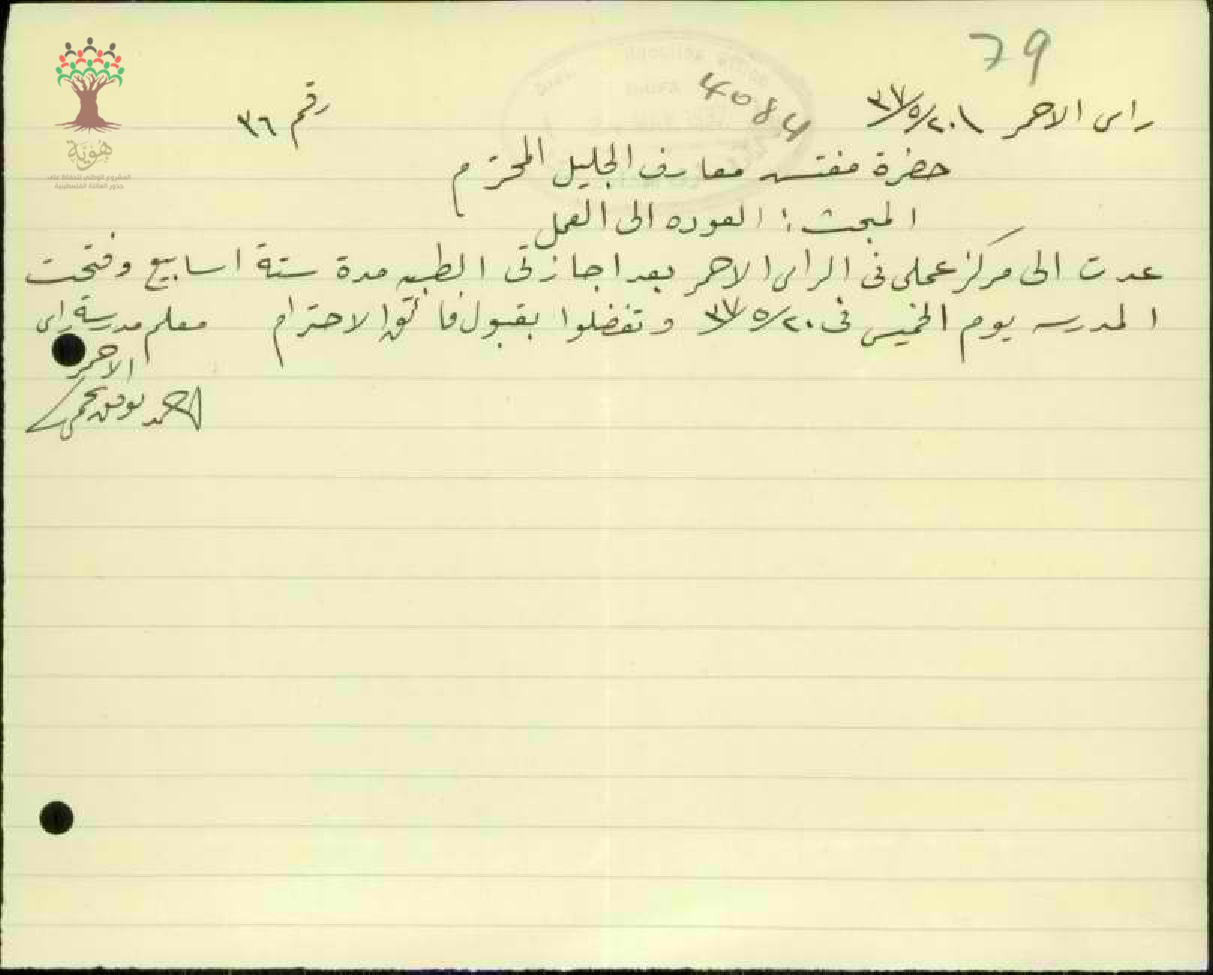 79
4084
راس الاحمر ٣٧/٥/٢٠
رقم ٣٦
حضرة مفتش معارف الجليل المحترم
المبحث: العوده الى العمل
عدت الى مركز عملي في الراس الاحمر بعد اجازتي الطبيه مدة ستة اسابيع وفتحت
المدرسه يوم الخميس في ٣٧/٥/٢٠ وتفضلوا بقبول فائق الاحترام
معلم مدرسة راس
الاحمر
احمد توفيق
هوية
المشروع الوطني للحفاظ على
جذور العائلة الفلسطينية